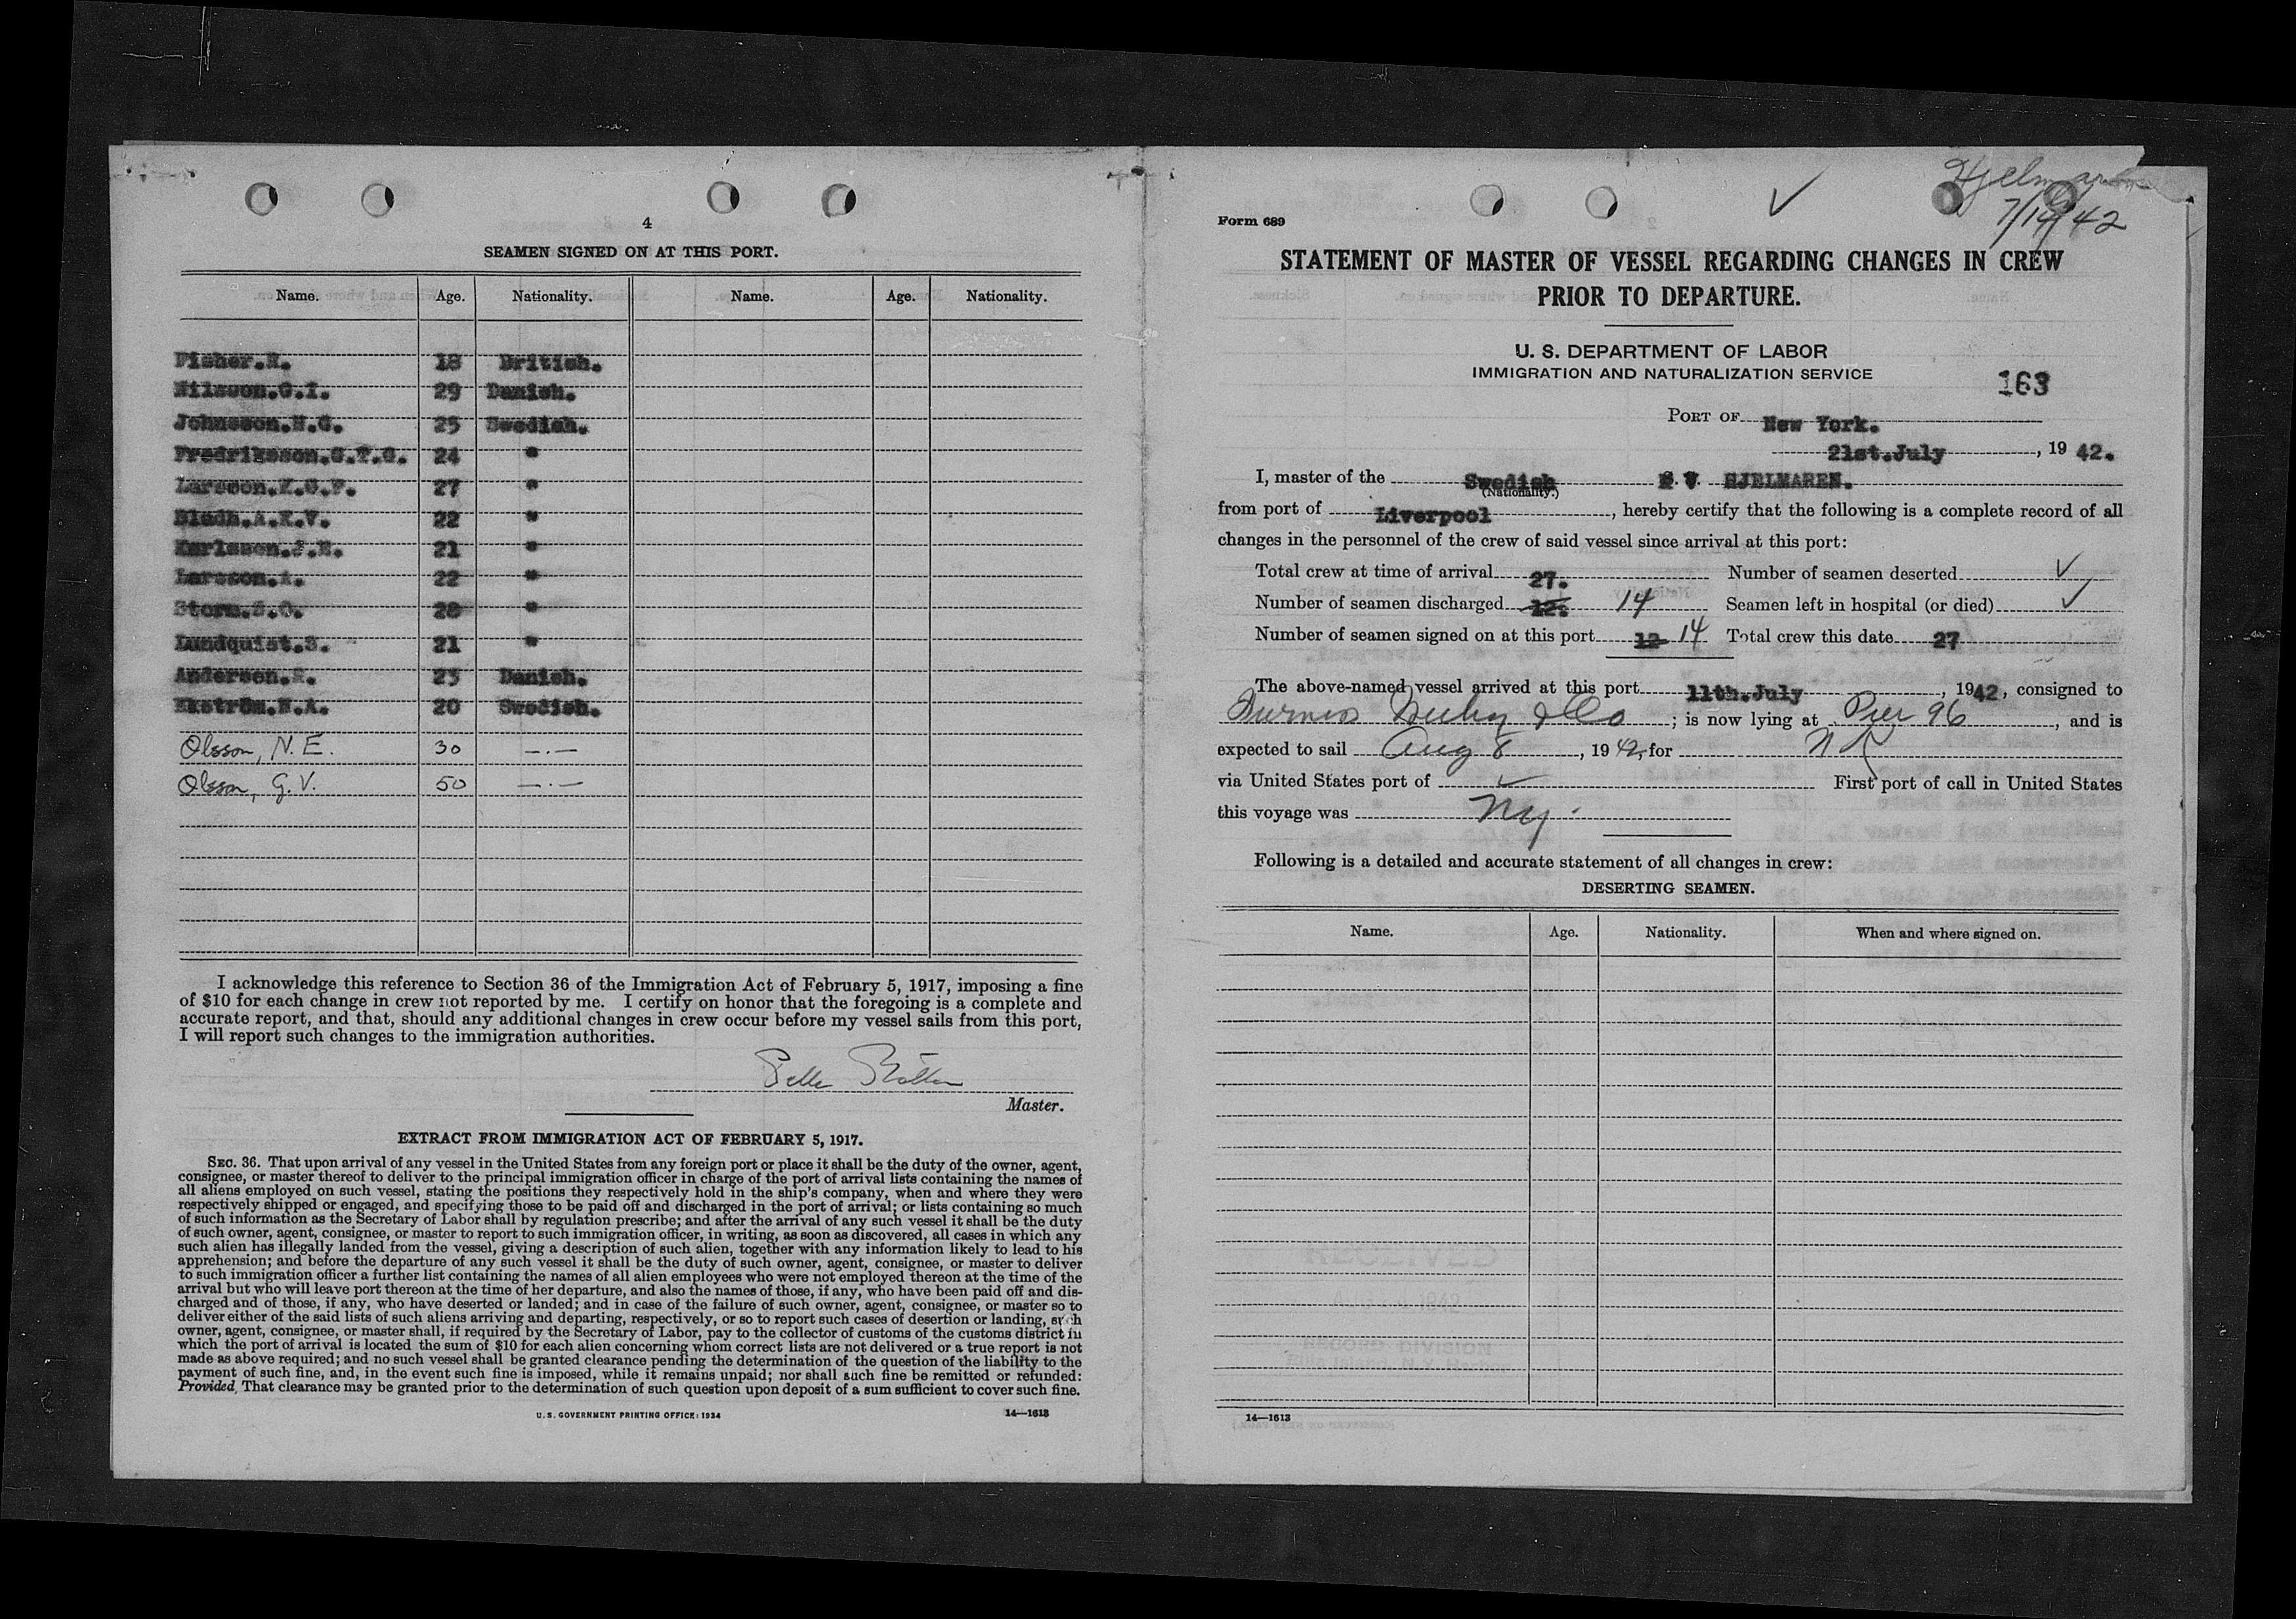 4
SEAMEN SIGNED ON AT THIS PORT.
Name. Age. Nationality. Name. Age. Nationality.
Fisher.R. 18 British.
Nilsson.G.I. 29 Danish.
Johnsson.N.G. 25 Swedish.
Fredriksson.G.T.G. 24 "
Larsson.K.G.F. 27 "
Bladh.A.K.V. 22 "
Karlsson.J.E. 21 "
Larsson.A. 22 "
Storm.S.O. 28 "
Lundquist.S. 21 "
Andersen.R. 23 Danish.
Ekström.N.A. 20 Swedish.
Olsson, N.E. 30 —.—
Olsson, G.V. 50 —.—
I acknowledge this reference to Section 36 of the Immigration Act of February 5, 1917, imposing a fine
of $10 for each change in crew not reported by me. I certify on honor that the foregoing is a complete and
accurate report, and that, should any additional changes in crew occur before my vessel sails from this port,
I will report such changes to the immigration authorities.
Master.
EXTRACT FROM IMMIGRATION ACT OF FEBRUARY 5, 1917.
SEC. 36. That upon arrival of any vessel in the United States from any foreign port or place it shall be the duty of the owner, agent,
consignee, or master thereof to deliver to the principal immigration officer in charge of the port of arrival lists containing the names of
all aliens employed on such vessel, stating the positions they respectively hold in the ship's company, when and where they were
respectively shipped or engaged, and specifying those to be paid off and discharged in the port of arrival; or lists containing so much
of such information as the Secretary of Labor shall by regulation prescribe; and after the arrival of any such vessel it shall be the duty
of such owner, agent, consignee, or master to report to such immigration officer, in writing, as soon as discovered, all cases in which any
such alien has illegally landed from the vessel, giving a description of such alien, together with any information likely to lead to his
apprehension; and before the departure of any such vessel it shall be the duty of such owner, agent, consignee, or master to deliver
to such immigration officer a further list containing the names of all alien employees who were not employed thereon at the time of the
arrival but who will leave port thereon at the time of her departure, and also the names of those, if any, who have been paid off and dis-
charged and of those, if any, who have deserted or landed; and in case of the failure of such owner, agent, consignee, or master so to
deliver either of the said lists of such aliens arriving and departing, respectively, or so to report such cases of desertion or landing, such
owner, agent, consignee, or master shall, if required by the Secretary of Labor, pay to the collector of customs of the customs district in
which the port of arrival is located the sum of $10 for each alien concerning whom correct lists are not delivered or a true report is not
made as above required; and no such vessel shall be granted clearance pending the determination of the question of the liability to the
payment of such fine, and, in the event such fine is imposed, while it remains unpaid; nor shall such fine be remitted or refunded:
Provided, That clearance may be granted prior to the determination of such question upon deposit of a sum sufficient to cover such fine.
U. S. GOVERNMENT PRINTING OFFICE: 1934 14—1613
Hjelmaren
7/14/42
Form 689
STATEMENT OF MASTER OF VESSEL REGARDING CHANGES IN CREW
PRIOR TO DEPARTURE.
U. S. DEPARTMENT OF LABOR
IMMIGRATION AND NATURALIZATION SERVICE
163
PORT OF New York.
21st.July, 19 42.
I, master of the Swedish HJELMAREN.
(Nationality.)
from port of Liverpool, hereby certify that the following is a complete record of all
changes in the personnel of the crew of said vessel since arrival at this port:
Total crew at time of arrival 27. Number of seamen deserted ✓
Number of seamen discharged 12. 14 Seamen left in hospital (or died) ✓
Number of seamen signed on at this port 12 14 Total crew this date 27
The above-named vessel arrived at this port 11th.July, 1942, consigned to
Furness Withy & Co; is now lying at Pier 96, and is
expected to sail Aug 8, 1942, for
via United States port of ✓ First port of call in United States
this voyage was Ny.
Following is a detailed and accurate statement of all changes in crew:
DESERTING SEAMEN.
Name. Age. Nationality. When and where signed on.
14—1613